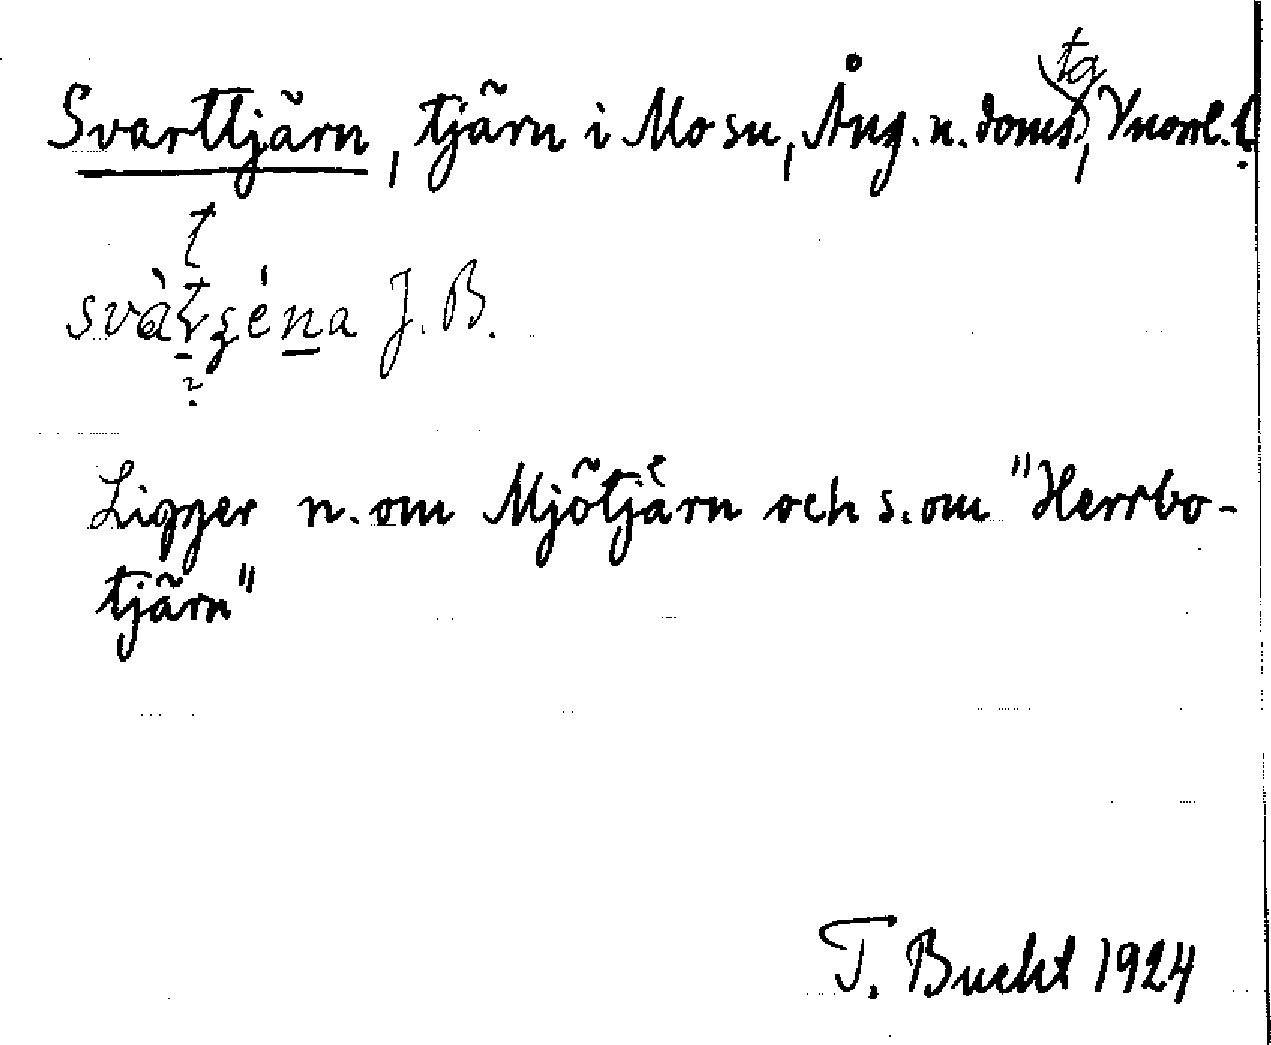 Svarttjärn, tjärn i Mo sn, Ång. n. domstg, Vnorrl. l.
t
svàtʒéna J. B.
?
Ligger n. om Mjötjärn och s. om "Herrbo-
tjärn"
T. Bucht 1924